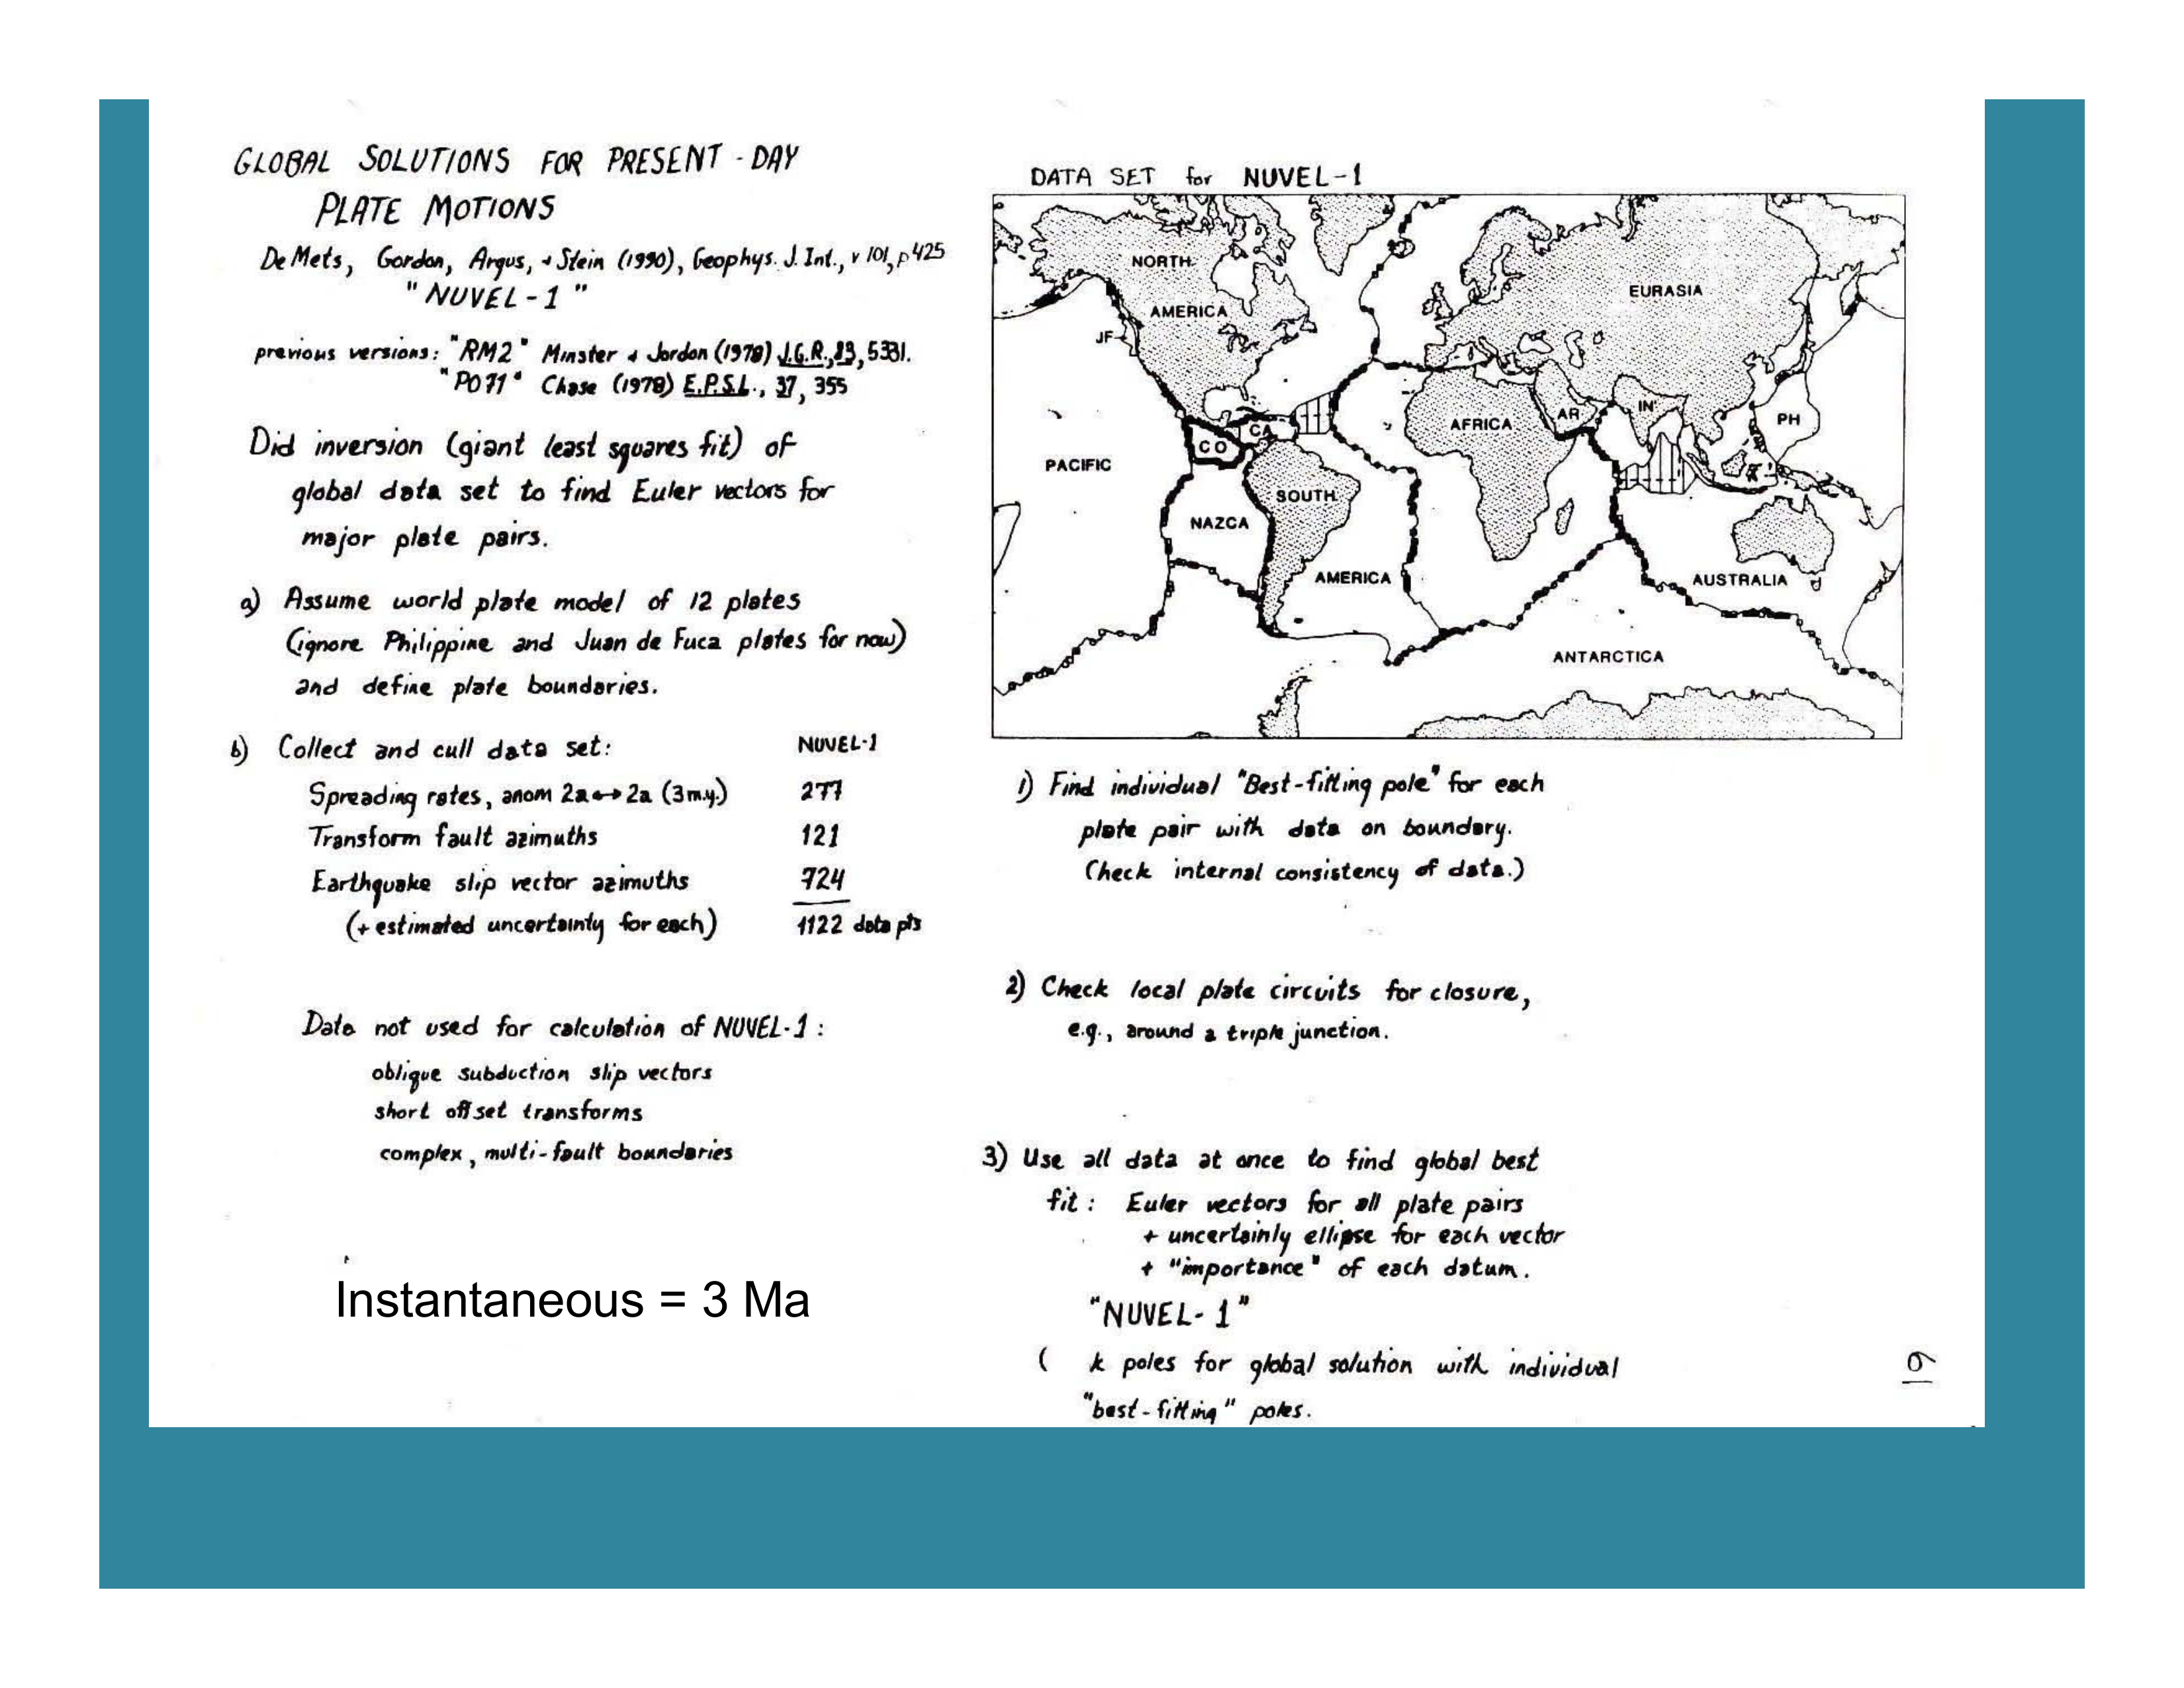 GLOBAL SOLUTIONS FOR PRESENT-DAY
PLATE MOTIONS
DeMets, Gordon, Argus, + Stein (1990), Geophys. J. Int., v 101, p 425
"NUVEL-1"
previous versions: "RM2" Minster + Jordan (1978) J.G.R., 83, 5331.
"P071" Chase (1978) E.P.S.L., 37, 355
Did inversion (giant least squares fit) of
global data set to find Euler vectors for
major plate pairs.
a) Assume world plate model of 12 plates
(ignore Philippine and Juan de Fuca plates for now)
and define plate boundaries.
b) Collect and cull data set: NUVEL-1
Spreading rates, anom 2a↔2a (3 m.y.) 277
Transform fault azimuths 121
Earthquake slip vector azimuths 724
(+ estimated uncertainty for each) 1122 data pts
Data not used for calculation of NUVEL-1:
oblique subduction slip vectors
short offset transforms
complex, multi-fault boundaries
Instantaneous = 3 Ma
DATA SET for NUVEL-1
NORTH
AMERICA
EURASIA
JF
CO
CA
AFRICA
AR
IN
PH
PACIFIC
SOUTH
AMERICA
NAZCA
AUSTRALIA
ANTARCTICA
1) Find individual "Best-fitting pole" for each
plate pair with data on boundary.
(heck internal consistency of data.)
2) Check local plate circuits for closure,
e.g., around a triple junction.
3) Use all data at once to find global best
fit: Euler vectors for all plate pairs
+ uncertainly ellipse for each vector
+ "importance" of each datum.
"NUVEL-1"
( k poles for global solution with individual
"best-fitting" poles.
19